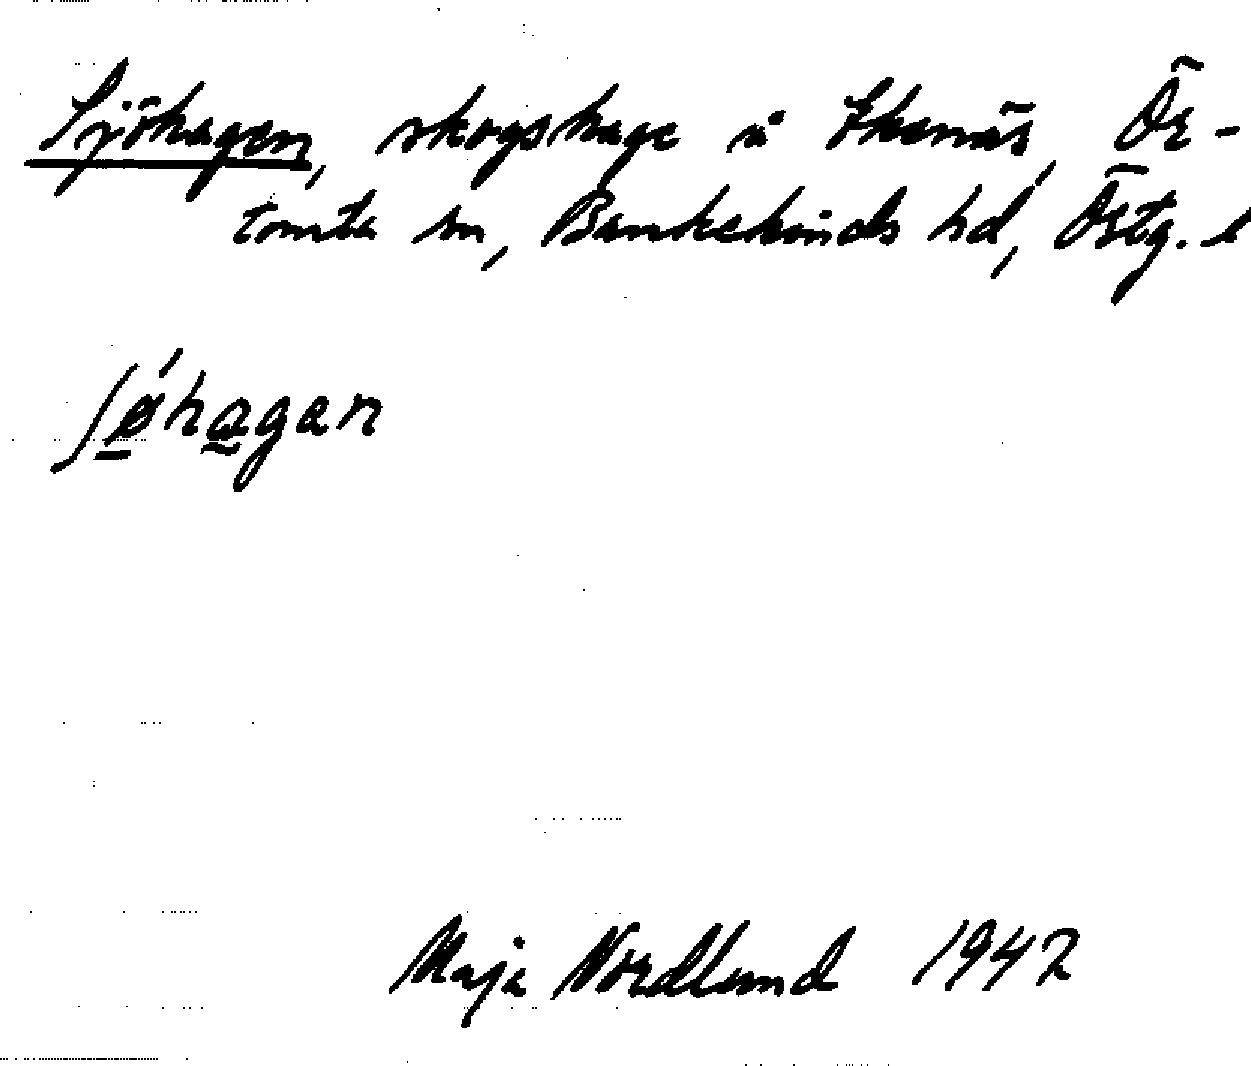 Sjöhagen, skogshage å Ekenäs, Ör-
tomta sn, Bankekinds hd, Östg. l
ʃø´hagan
Maja Nordlund 1942